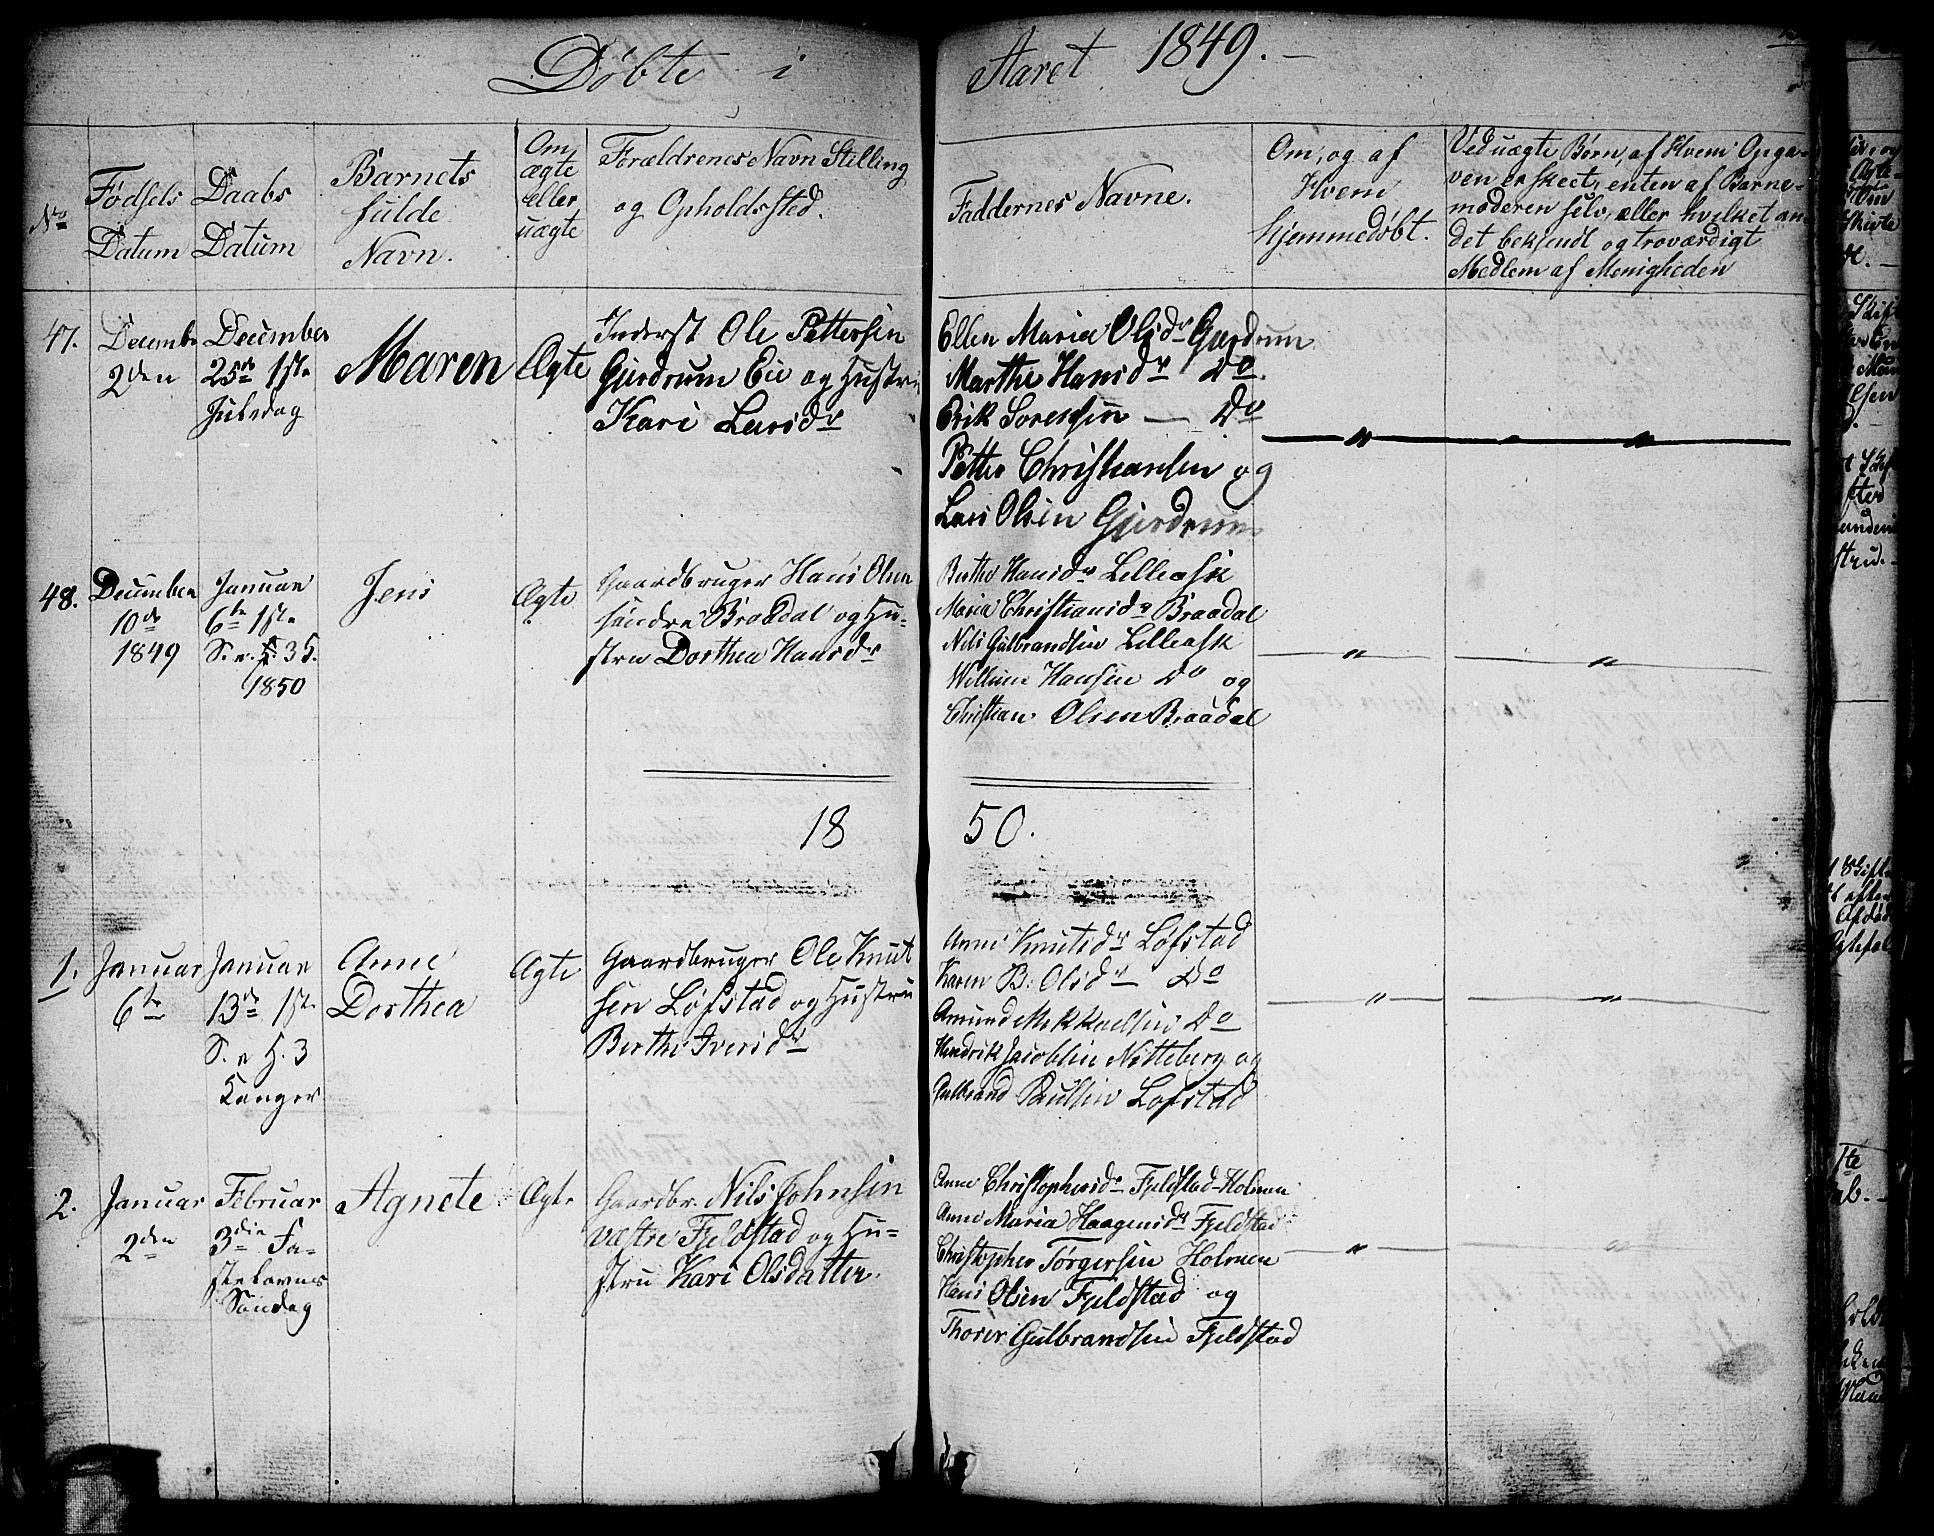 Døbte i Aaret 1849.
No
Fødsels
Datum
Daabs
Datum
Barnets
fulde
Navn.
Om
ægte
eller
uægte
Forældrenes Navn Stelling
og Opholdsted.
Faddernes Navne.
Om, og af
Hvem
hjemmedøbt.
Ved uægte Børn, af Hvem Opga-
ven er skeet, enten af Barne-
moderen selv, eller hvilket an-
det bekjendt og troværdigt
Medlem af Menigheden
47.
Decembr
2den
December
25de 1ste
Juledag
Maren
Ægte
Inderst Ole Pettersen
Gjerdrum Eie og Hustru
Kari Larsdr
Ellen Maria Olsdr Gjerdrum
Marthe Hansdr Do
Erik Sørensen — Do
Petter Christiansen og
Lars Olsen Gjerdrum
48.
December
10de
1849
Januar
6te 1ste
S. e. H. 35.
1850
Jens
Ægte
Gaardbruger Hans Olsen
søndre Braadal og Hu-
stru Dorthea Hansdr
Berthe Hansdr Lilleask
Maria Christiansdr Braadal
Nils Gulbrandsen Lilleask
Willum Hansen Do og
Christian Olsen Braadal
18 50.
1.
Januar
6te
Januar
13de 1ste
S. e H. 3
Konger
Anne
Dorthea
Ægte
Gaardbruger Ole Knut
sen Løfstad og Hustru
Berthe Iversdr
Anne Knutsdr Løfstad
Karen B. Olsdr — Do
Amund Mikkaelsen Do
Hendrik Jacobsen Nitteberg og
Gulbrand Paulsen Løfstad
2.
Januar
2den
Februar
3die Fa-
stelavns
Søndag
Agnete
Ægte
Gaardbr. Nils Johnsen
væstre Fjeldstad og Hu-
stru Kari Olsdatter.
Anne Christophersdr Fjeldstad-Holmen
Anne Maria Haagensdr Fjeldstad
Christopher Torgersen Holmen
Hans Olsen Fjeldstad og
Thorer Gulbrandsen Fjeldstad